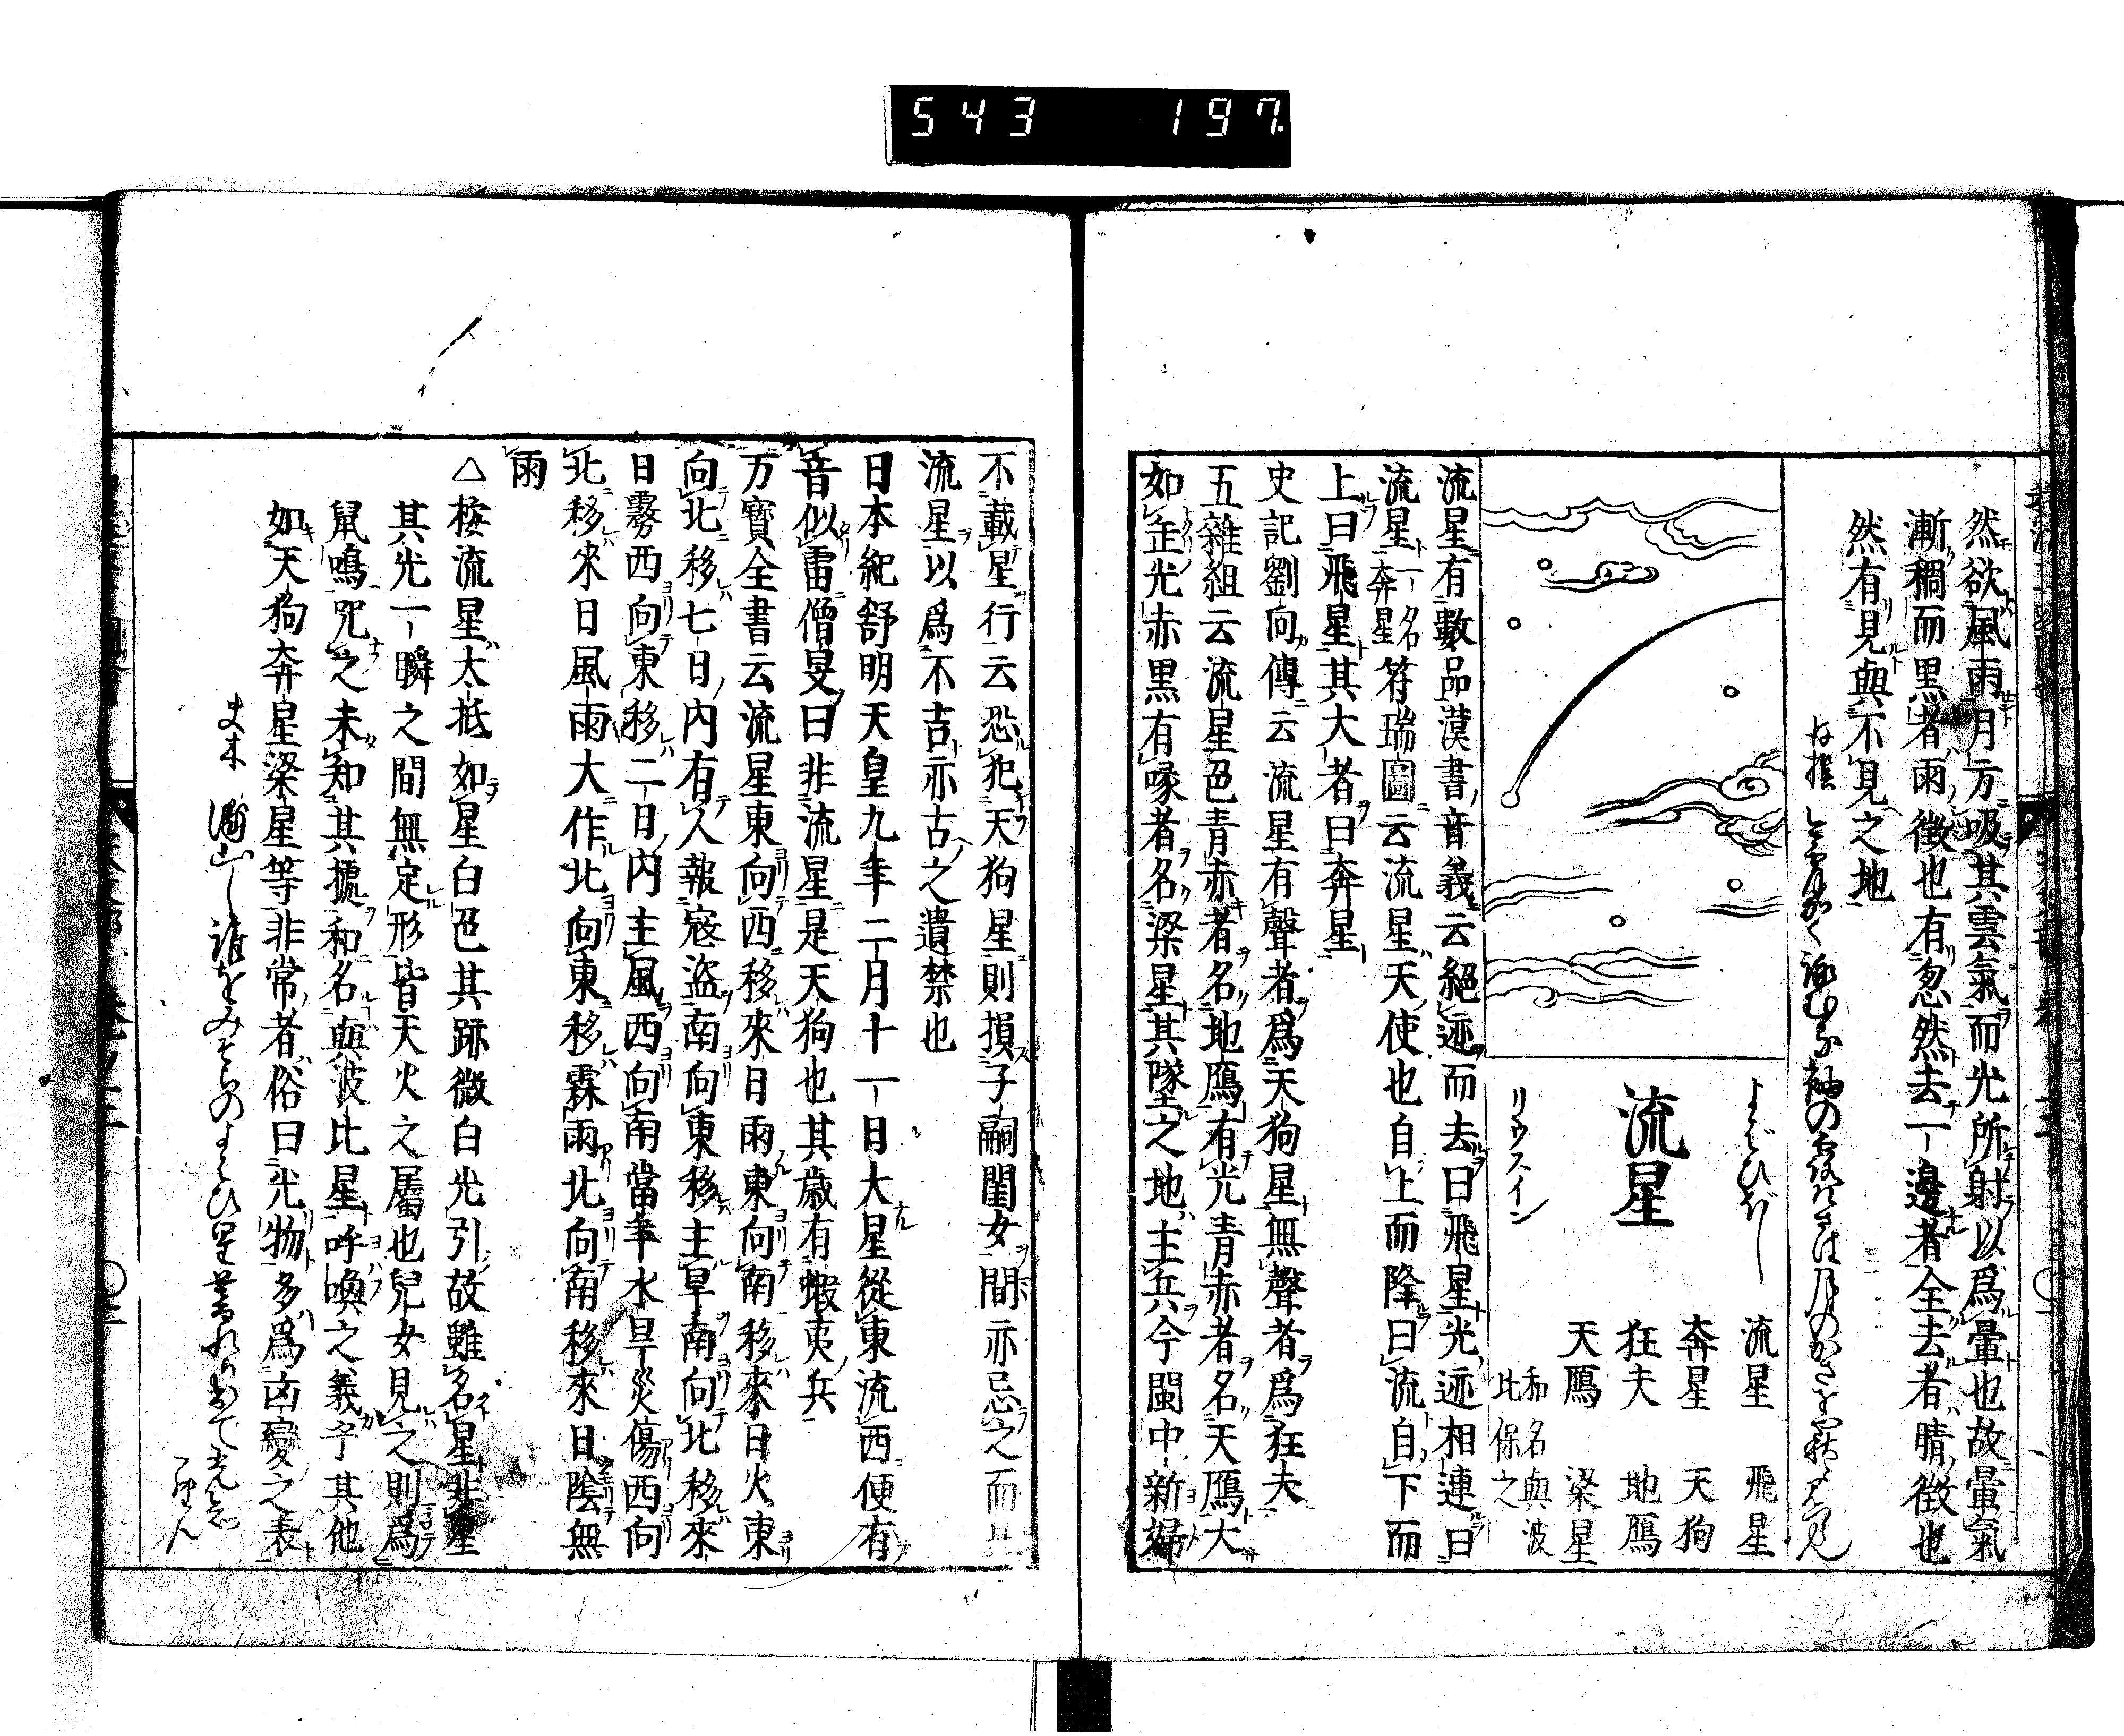 543 197
然欲風雨月方吸其雲氣而光所射以爲暈也故暈氣
漸稠而黒者雨徴也有忽然去一邊者全去者晴徴也
然有見與不見之地
よばひぼし
流星
リウスイン
流星 飛星
奔星 天狗
狂夫 地鴈
天鴈 梁星
和名與波
比保之
流星有數品漢書音義云絕迹而去曰飛星光迹相連曰
流星一名奔星符瑞圖云流星天使也自上而降曰流自下而
上曰飛星其大者曰奔星
史記劉向傳云流星有聲者爲天狗星無聲者爲狂夫
五雜組云流星色青赤者名地鴈有光青赤者名天鴈大
如缶光赤黒有喙者名梁星其墜之地主兵今閩中新婦
不載星行云恐犯天狗星則損子嗣閨女間亦忌之而
流星以爲不吉亦古之遺禁也
日本紀舒明天皇九年二月十一日大星從東流西便有
音似雷僧旻曰非流星是天狗也其歳有蝦夷兵
万寳全書云流星東向西移來日雨東向南移來日火東
向北移七日内有人報寇盗南向東移主旱南向北移來
日霧西向東移二日内主風西向南當年水旱災傷西向
北移來日風雨大作北向東移霖雨北向南移來日陰無
雨
△桉流星太抵如星白色其跡微白光引故雖名星非星
其光一瞬之間無定形皆天火之屬也兒女見之則爲
鼠鳴咒之未知其據和名與波比星呼喚之義乎其他
如天狗奔星梁星等非常者俗曰光物多爲凶變之表